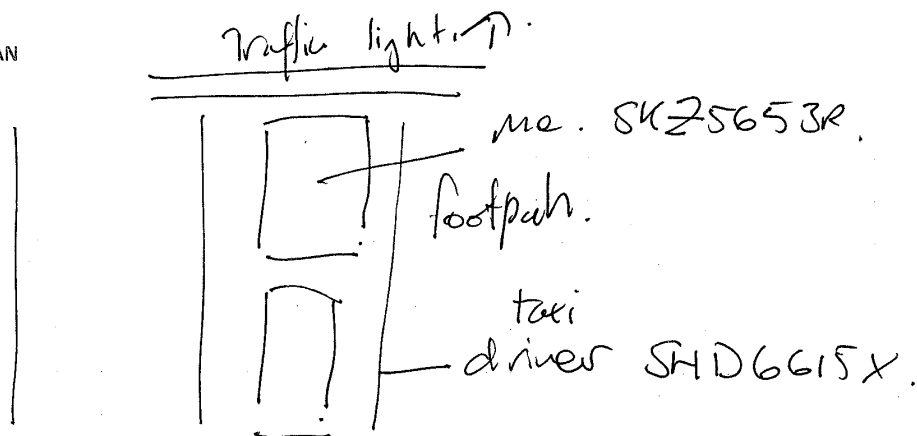 AN
Traffic light.
me. SKZ5653R.
footpath.
taxi
driver SHD6615X.